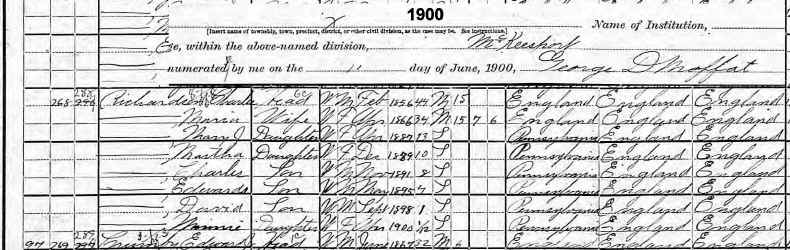 1900
X
Name of Institution,
[Insert name of township, town, precinct, district, or other civil division, as the case may be. See instructions.]
, within the above-named division, McKeesport
numerated by me on the 11 day of June, 1900, George D Moffat
268 Richardson Charles Head W M Feb 1856 44 M 15 England England England
Maria Wife W F Apr 1866 34 M 15 7 6 England England England
Mary J Daughter W F Apr 1887 13 S Pennsylvania England England
Martha Daughter W F Dec 1889 10 S Pennsylvania England England
Charles Son W M Nov 1891 8 S Pennsylvania England England
Edward Son W M May 1895 S Pennsylvania England England
David Son W M Sept 1898 1 S Pennsylvania England England
Daughter W F Apr 1900 S Pennsylvania England England
97 269 Edward Head W M June 1867 32 M 6 England England England